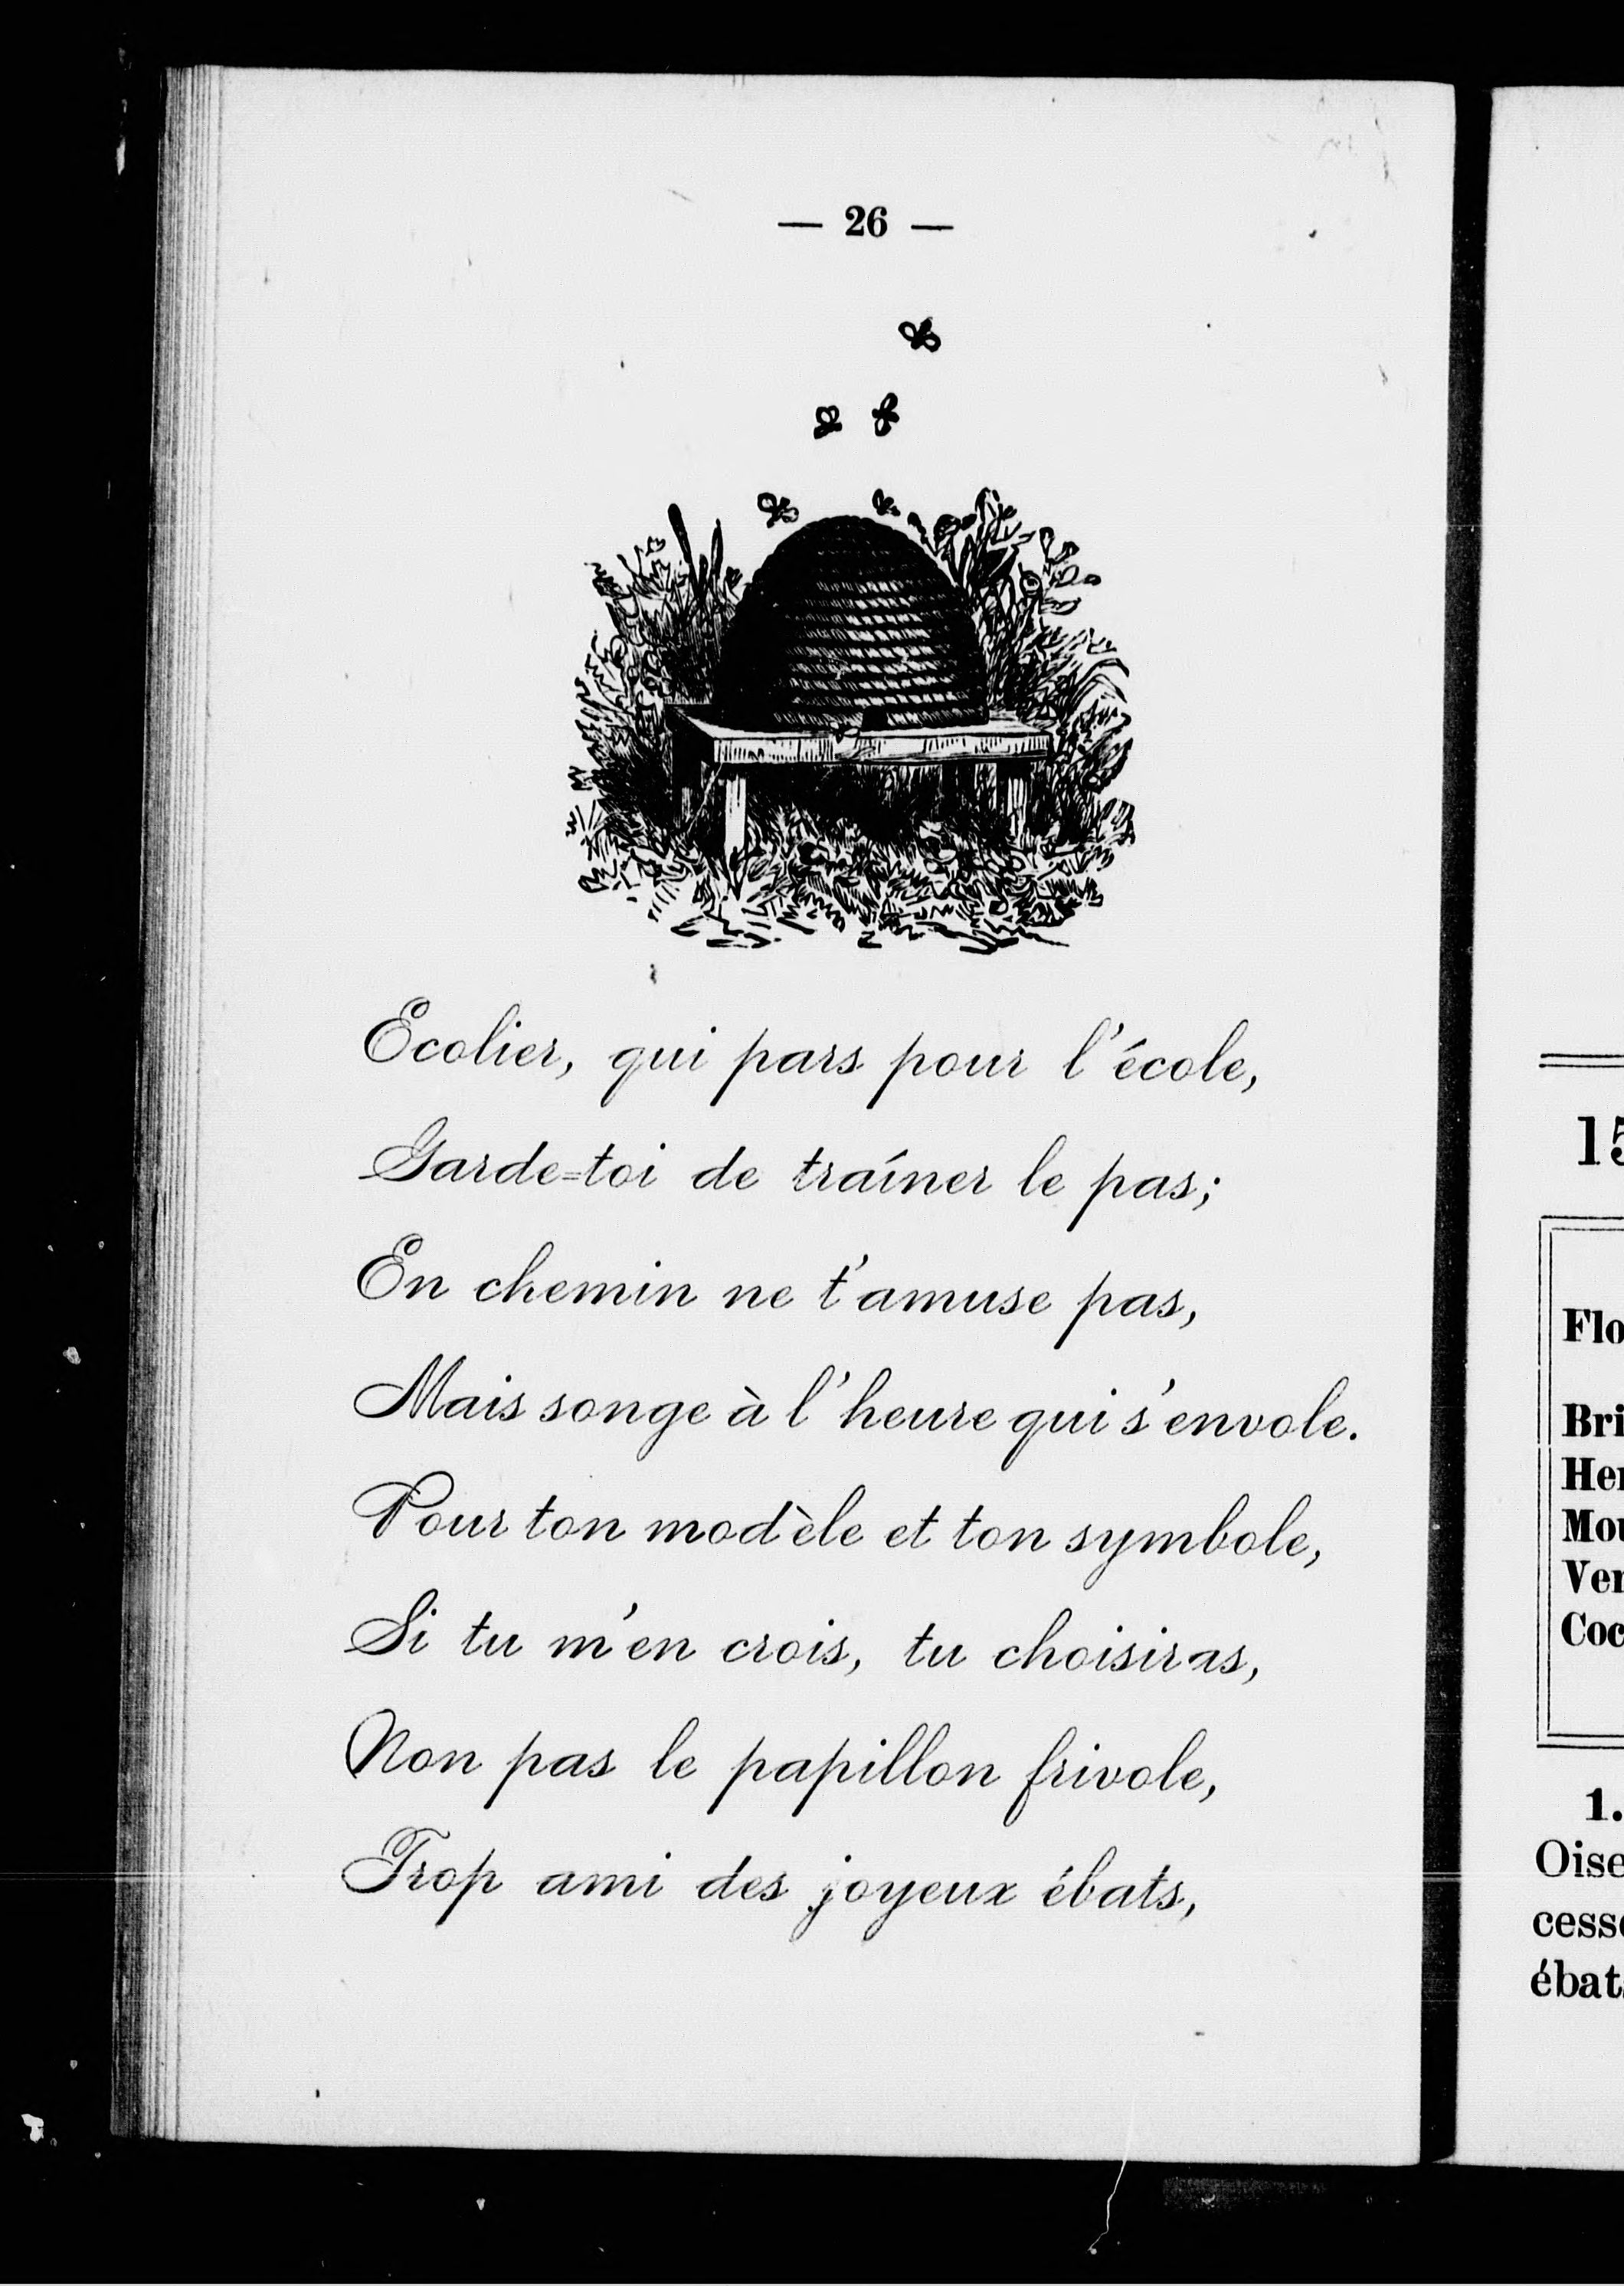 — 26 —
Ecolier, qui pars pour l'école,
Garde-toi de traîner le pas;
En chemin ne t'amuse pas,
Mais songe à l'heure qui s'envole.
Pour ton modèle et ton symbole,
Si tu m'en crois, tu choisiras,
Non pas le papillon frivole,
Trop ami des joyeux ébats,
15
Flo
Bri
Her
Mou
Ver
Coc
1.
Oise
cess
ébat